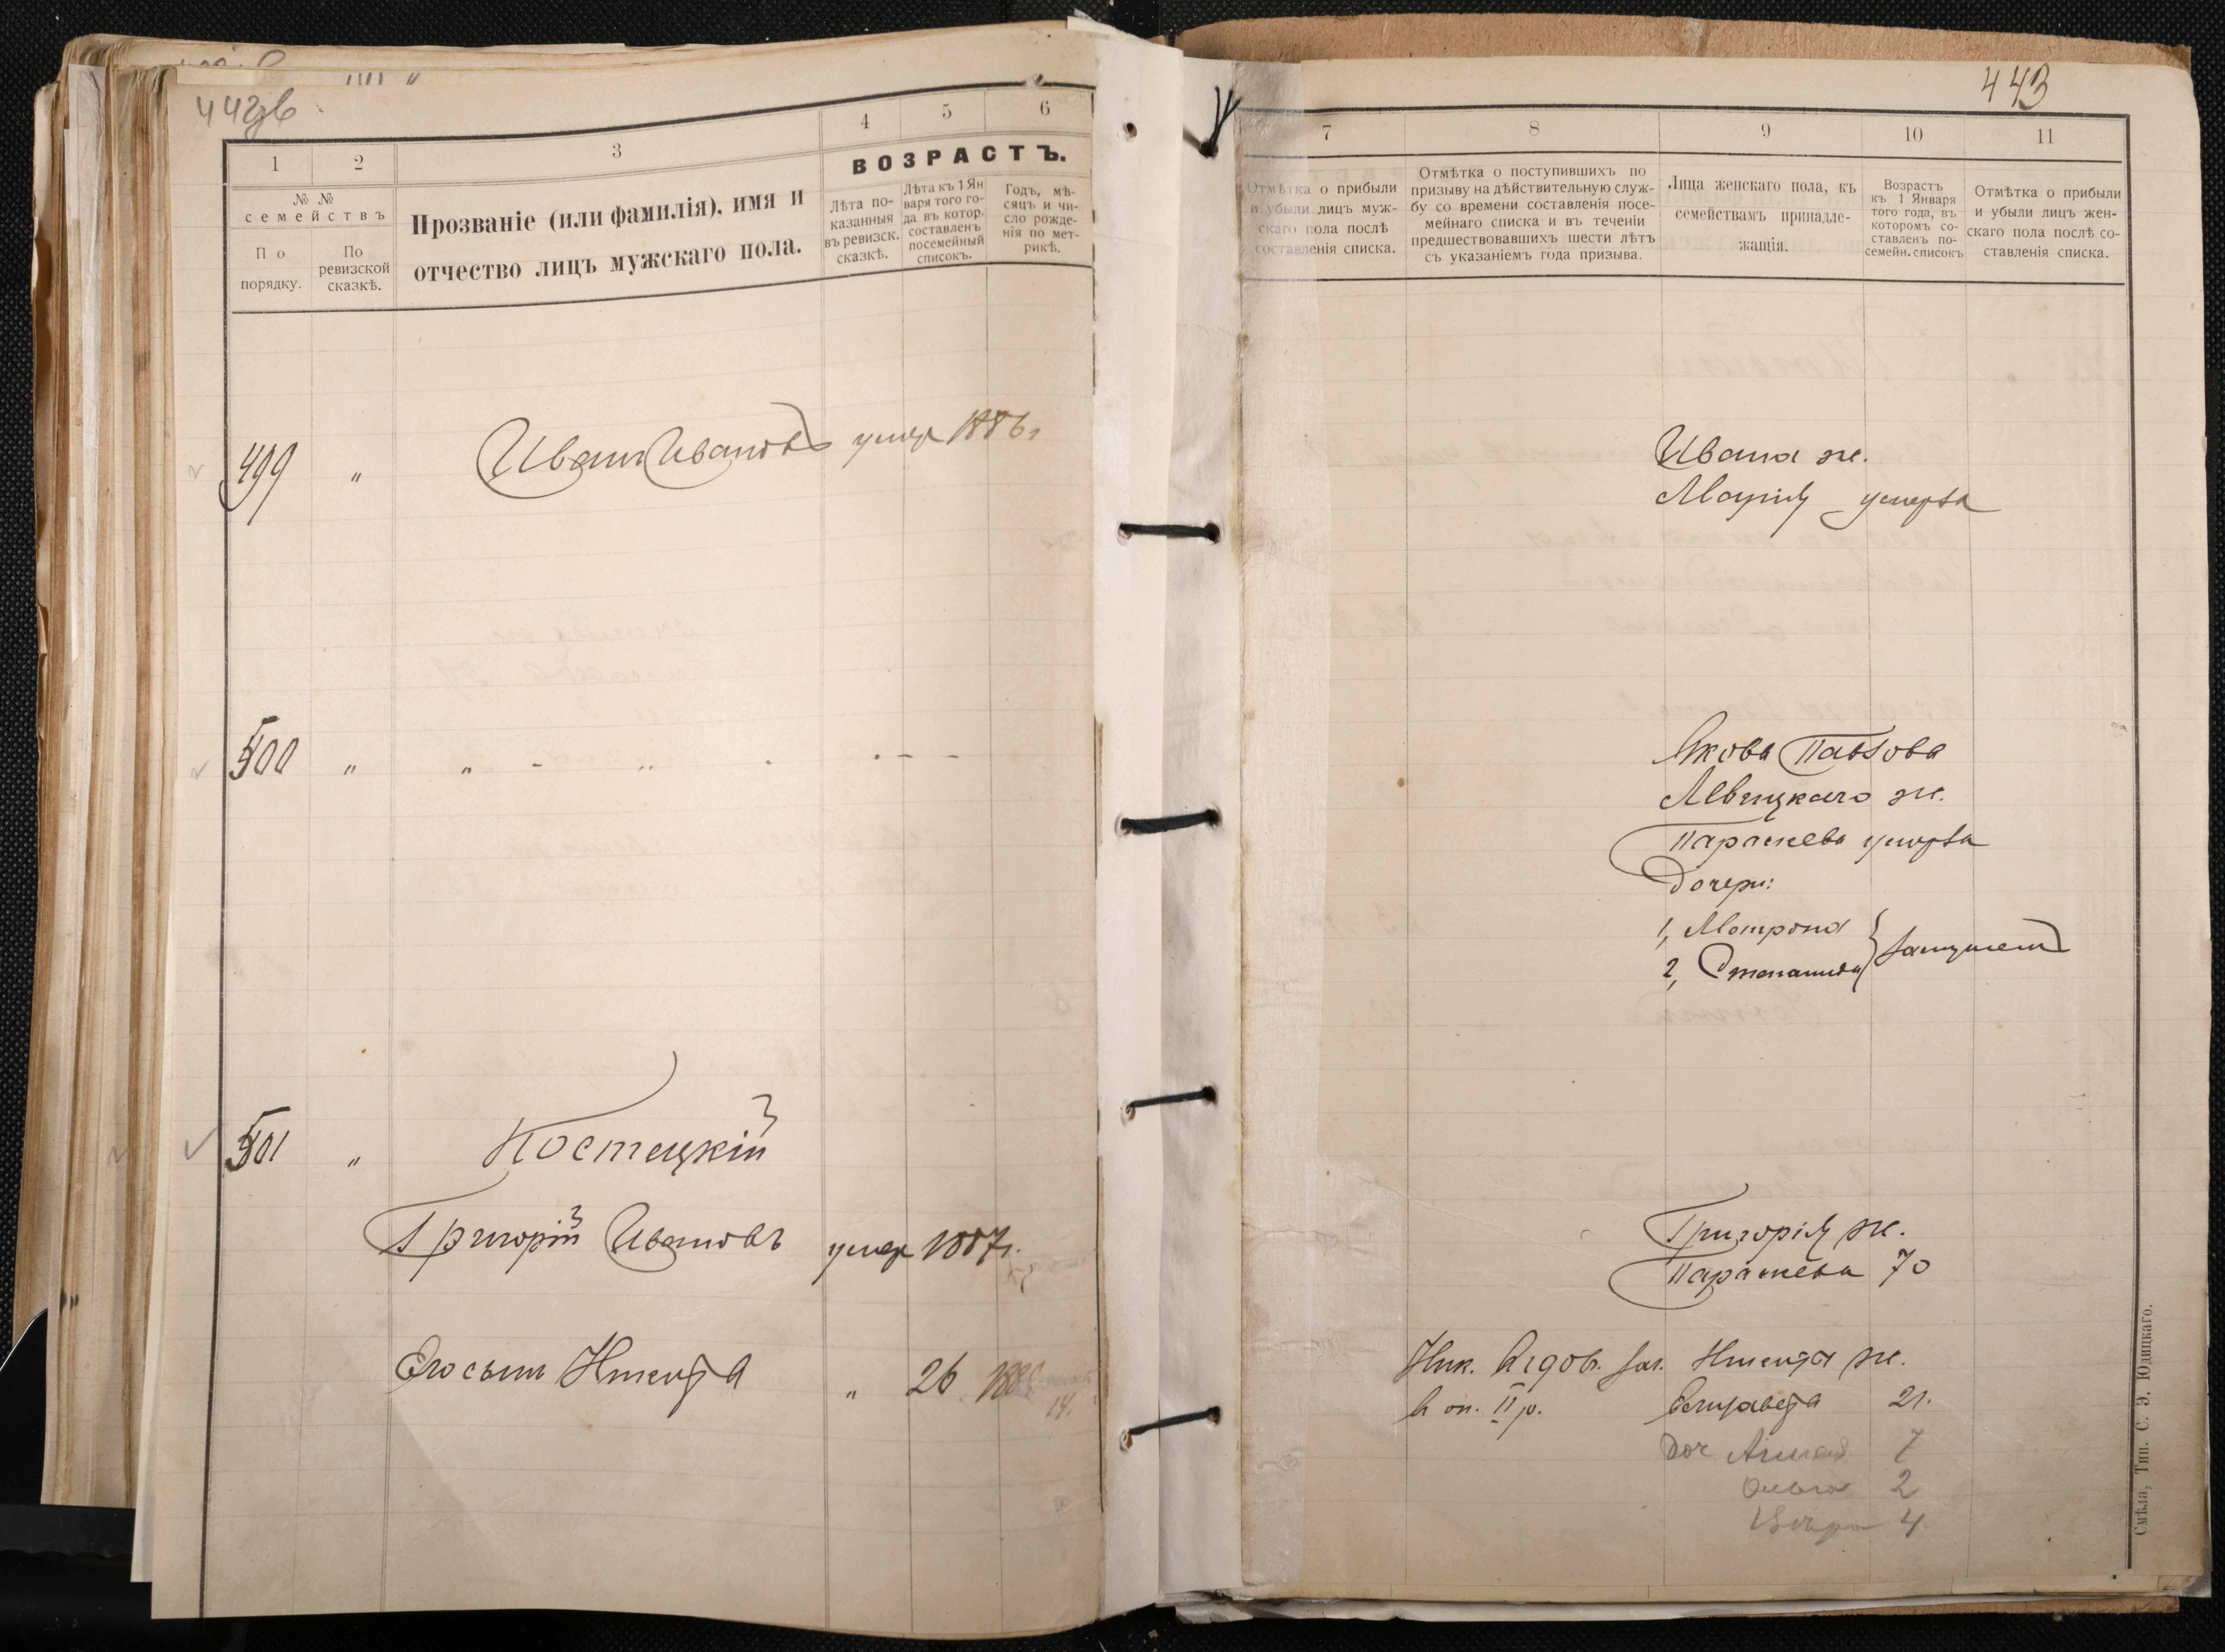 442об
1
2
3
4
5
6
№ №
семействъ
По
порядку.
По
ревизской
сказкѣ.
Прозваніе (или фамилія), имя и
отчество лицъ мужскаго пола.
ВОЗРАСТЪ.
Лѣта по-
казанныя
въ ревизск.
сказкѣ.
Лѣта къ 1 Ян
варя того го-
да въ котор.
составленъ
посемейный
списокъ.
Годъ, мѣ-
сяцъ и чи-
сло рожде-
нія по мет-
рикѣ.
499 "
Иванъ Ивановъ умер 1886г
500 "
501 "
Костецкій
Григорій Ивановъ умер 1887г.
Его сынъ Никита " 26
14.
443
7
8
9
10
11
Отмѣтка о прибыли
и убыли лицъ муж-
скаго пола послѣ
составленія списка.
Отмѣтка о поступившихъ по
призыву на дѣйствительную служ-
бу со времени составленія посе-
мейнаго списка и въ теченіи
предшествовавшихъ шести лѣтъ
съ указаніемъ года призыва.
Лица женскаго пола, къ
семействамъ принадле-
жащія.
Возрастъ
къ 1 Января
того года, въ
которомъ со-
ставленъ по-
семейн. списокъ
Отмѣтка о прибыли
и убыли лицъ жен-
скаго пола послѣ со-
ставленія списка.
Ивана ж.
Марія умерла
Якова Павлова
Левицкаго ж.
Параскева умерла
Дочери:
1, Матрона
2, Степанида
замужем
Григорія ж.
Параскева 70
Никиты ж.
II р.
Елизавета 21.
Доч 7
Ольга 2
Вѣра 4
Смѣла, Тип. С. Э. Юдицкаго.